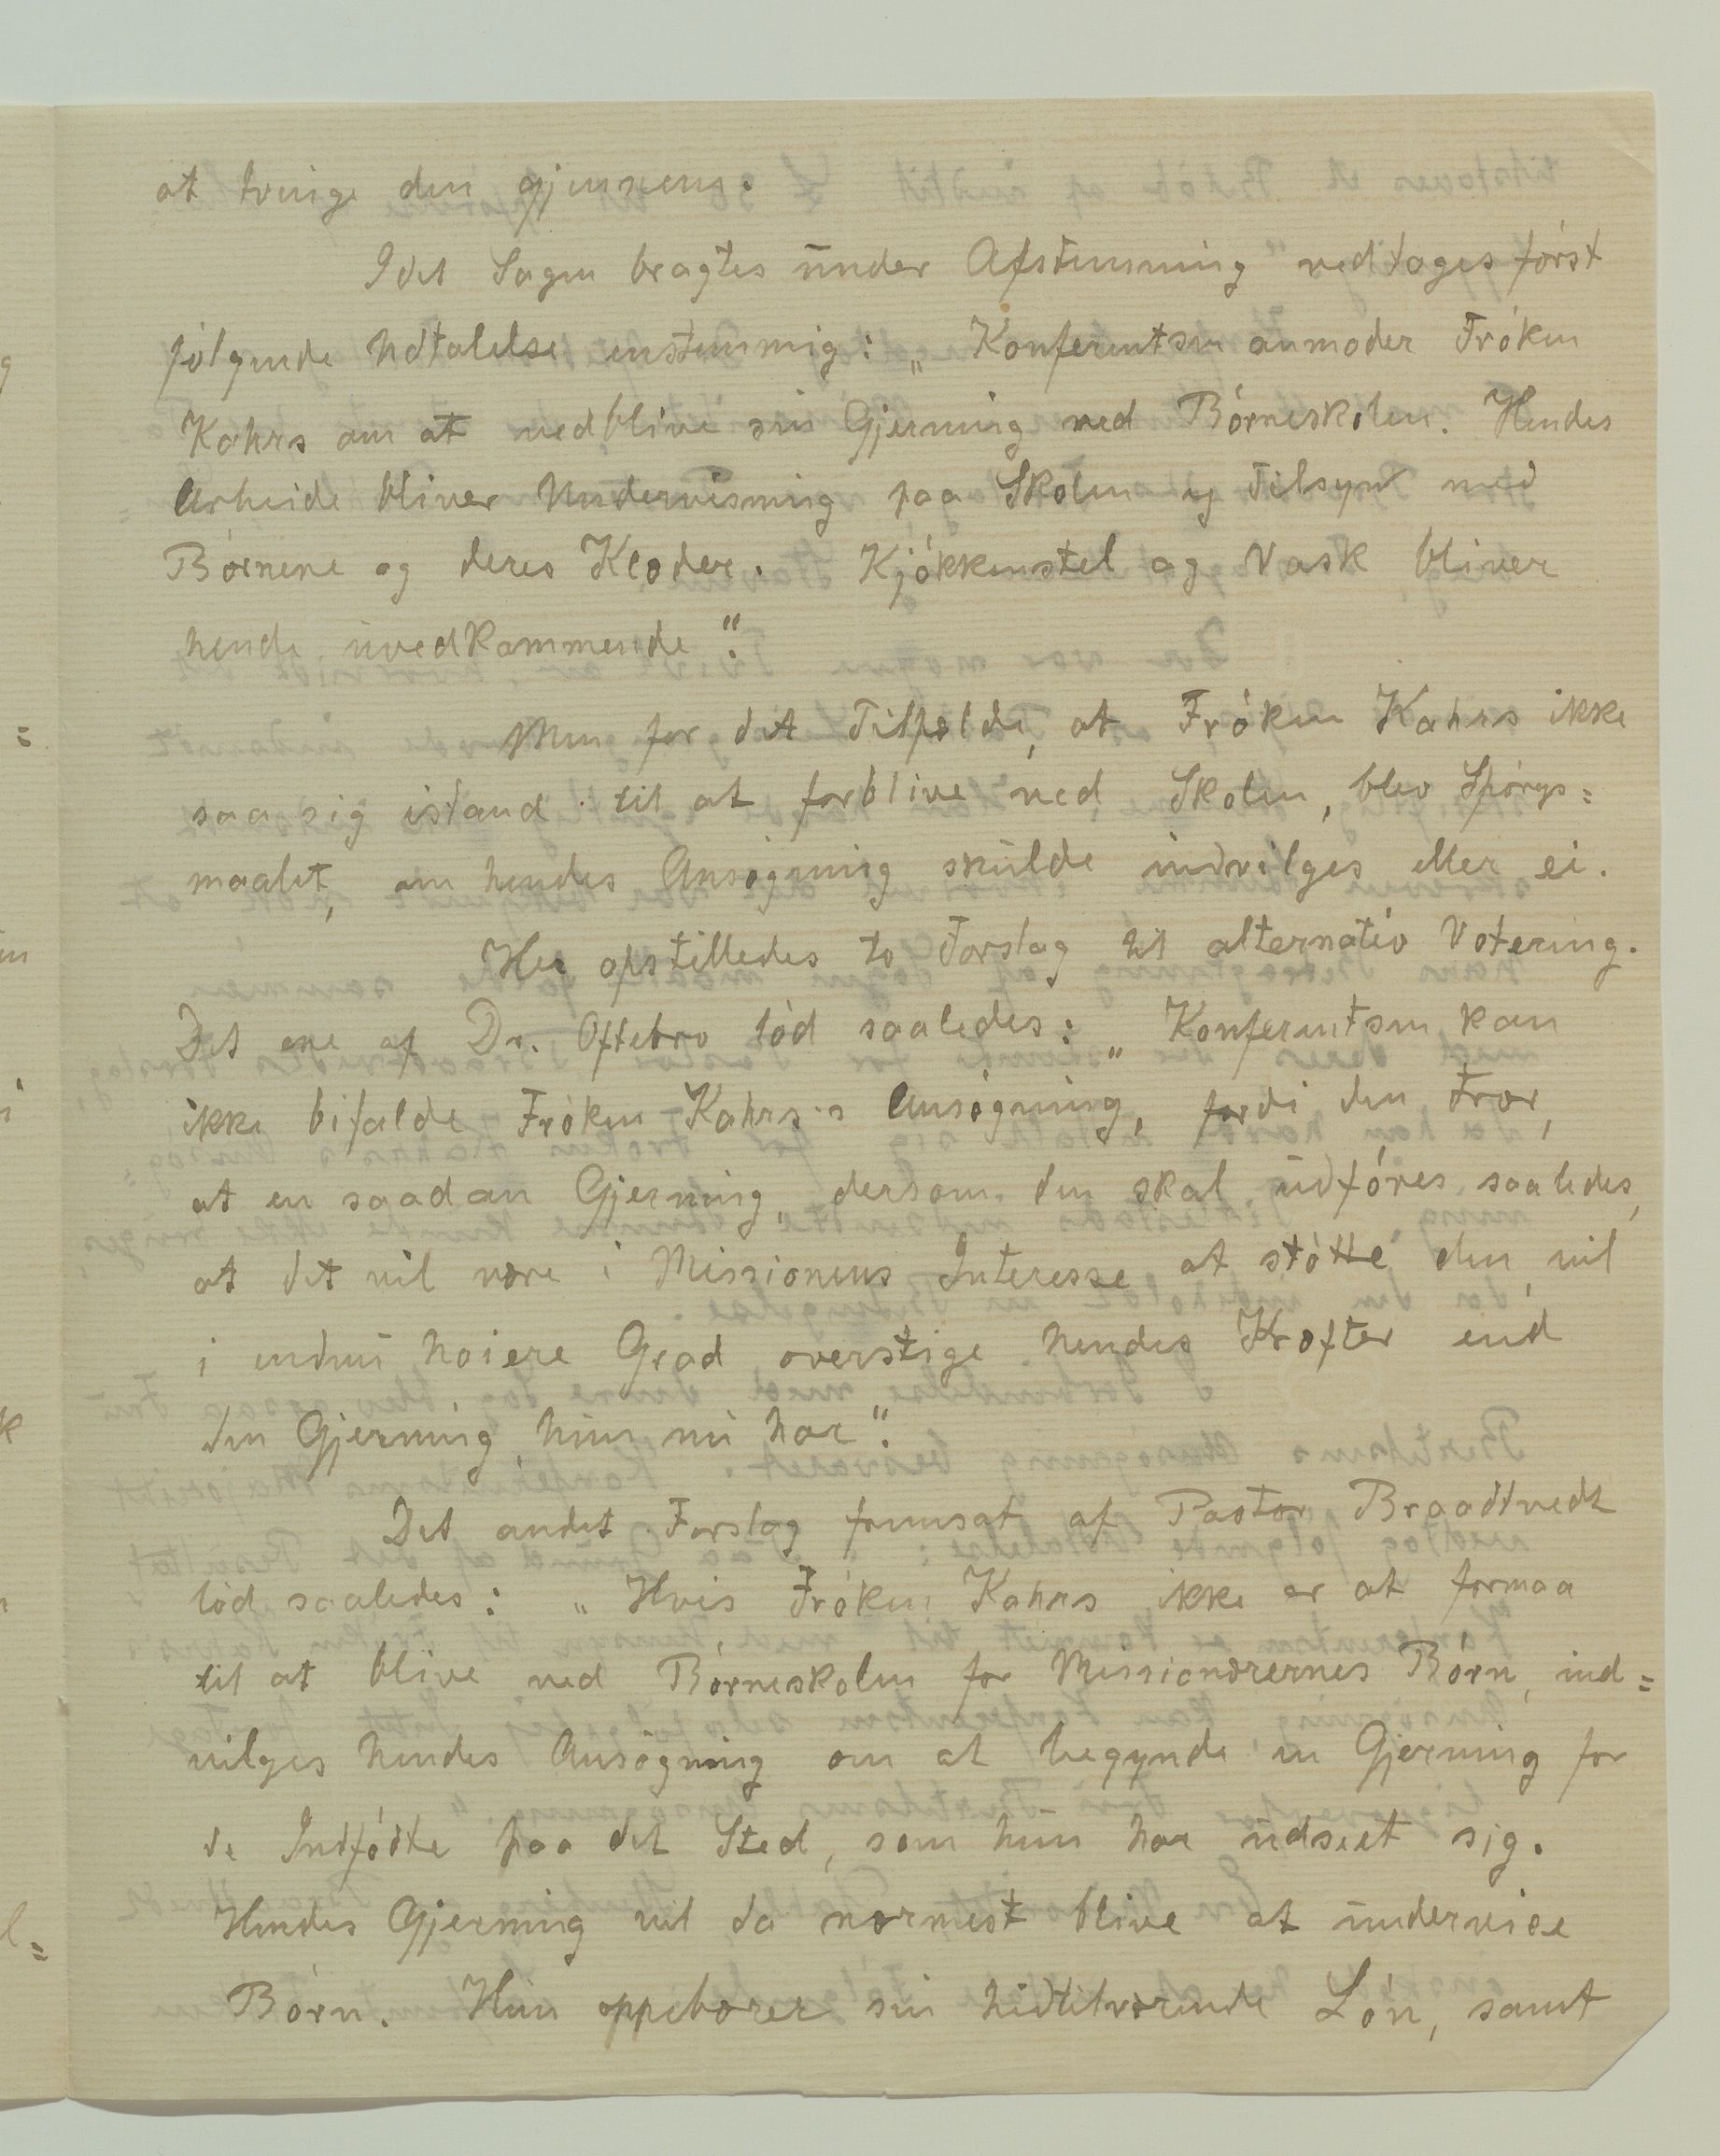 at tvinge den gjennem.
Idet Sagen bragtes under Afstemning vedtoges først
følgende Udtalelse enstemmig: „Konferentsen anmoder Frøken
Kahrs om at vedblive sin Gjerning ved Børneskolen. Hendes
Arbeide bliver Undervisning paa Skolen og Tilsyn med
Børnene og deres Klæder. Kjøkkenstel og Vask bliver
hende uvedkommende".
Men for det Tilfælde, at Frøken Kahrs ikke
saa sig istand til at forblive ved Skolen, blev Spørgs=
maalet, om hendes Ansøgning skulde indvilges eller ei.
Her opstilledes to Forslag til alternativ Votering.
Det ene af Dr. Oftebro lød saaledes: „Konferentsen kan
ikke bifalde Frøken Kahrs's Ansøgning, fordi den tror,
at en saadan Gjerning, dersom den skal udføres saaledes,
at det vil være i Missionens Interesse at støtte den, vil
i endnu høiere Grad overstige hendes Kræfter end
den Gjerning, hun nu har".
Det andet Forslag fremsat af Pastor Braadtvedt
lød saaledes: „Hvis Frøken Kahrs ikke er at formaa
til at blive ved Børneskolen for Missionærernes Børn, ind=
vilges hendes Ansøgning om at begynde en Gjerning for
de Indfødte paa det Sted, som hun har udseet sig.
Hendes Gjerning vil da nærmest blive at undervise
Børn. Hun oppebærer sin hidtilværende Løn, samt